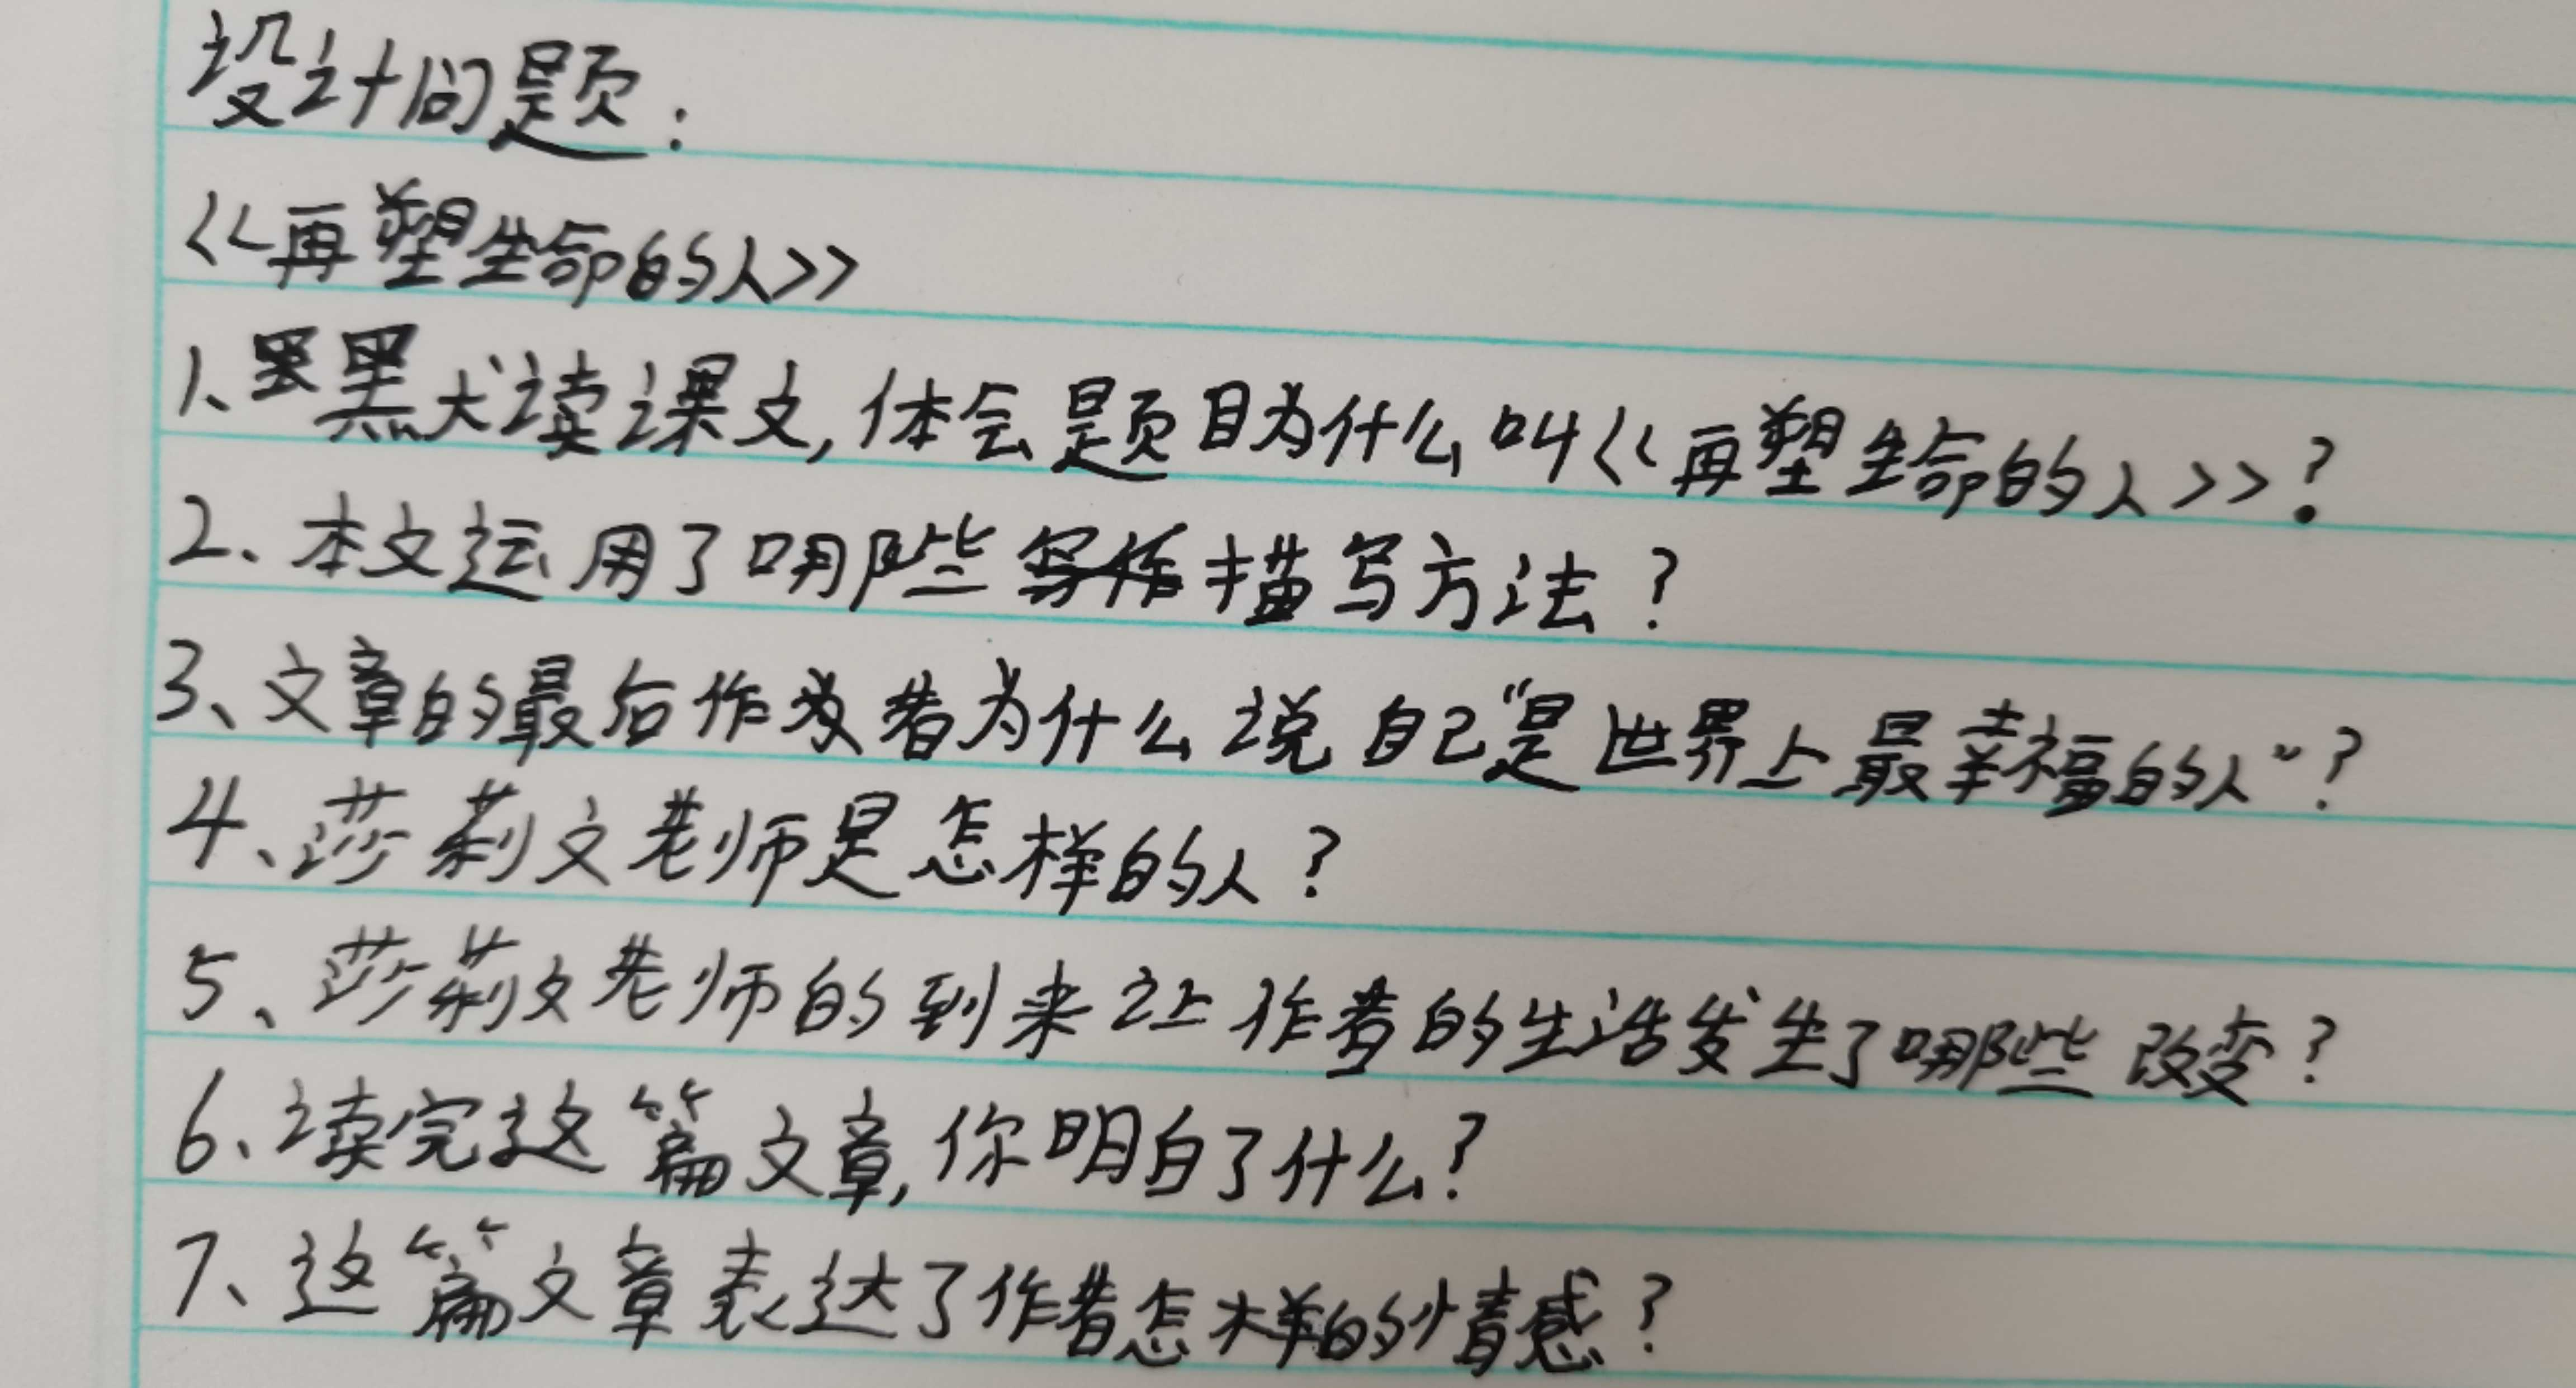 设计问题：
《再塑生命的人》
1、默读课文，体会题目为什么叫《再塑生命的人》？
2、本文运用了哪些写作描写方法？
3、文章的最后作者为什么说自己“是世界上最幸福的人”？
4、莎莉文老师是怎样的人？
5、莎莉文老师的到来让作者的生活发生了哪些改变？
6、读完这篇文章，你明白了什么？
7、这篇文章表达了作者怎样的情感？